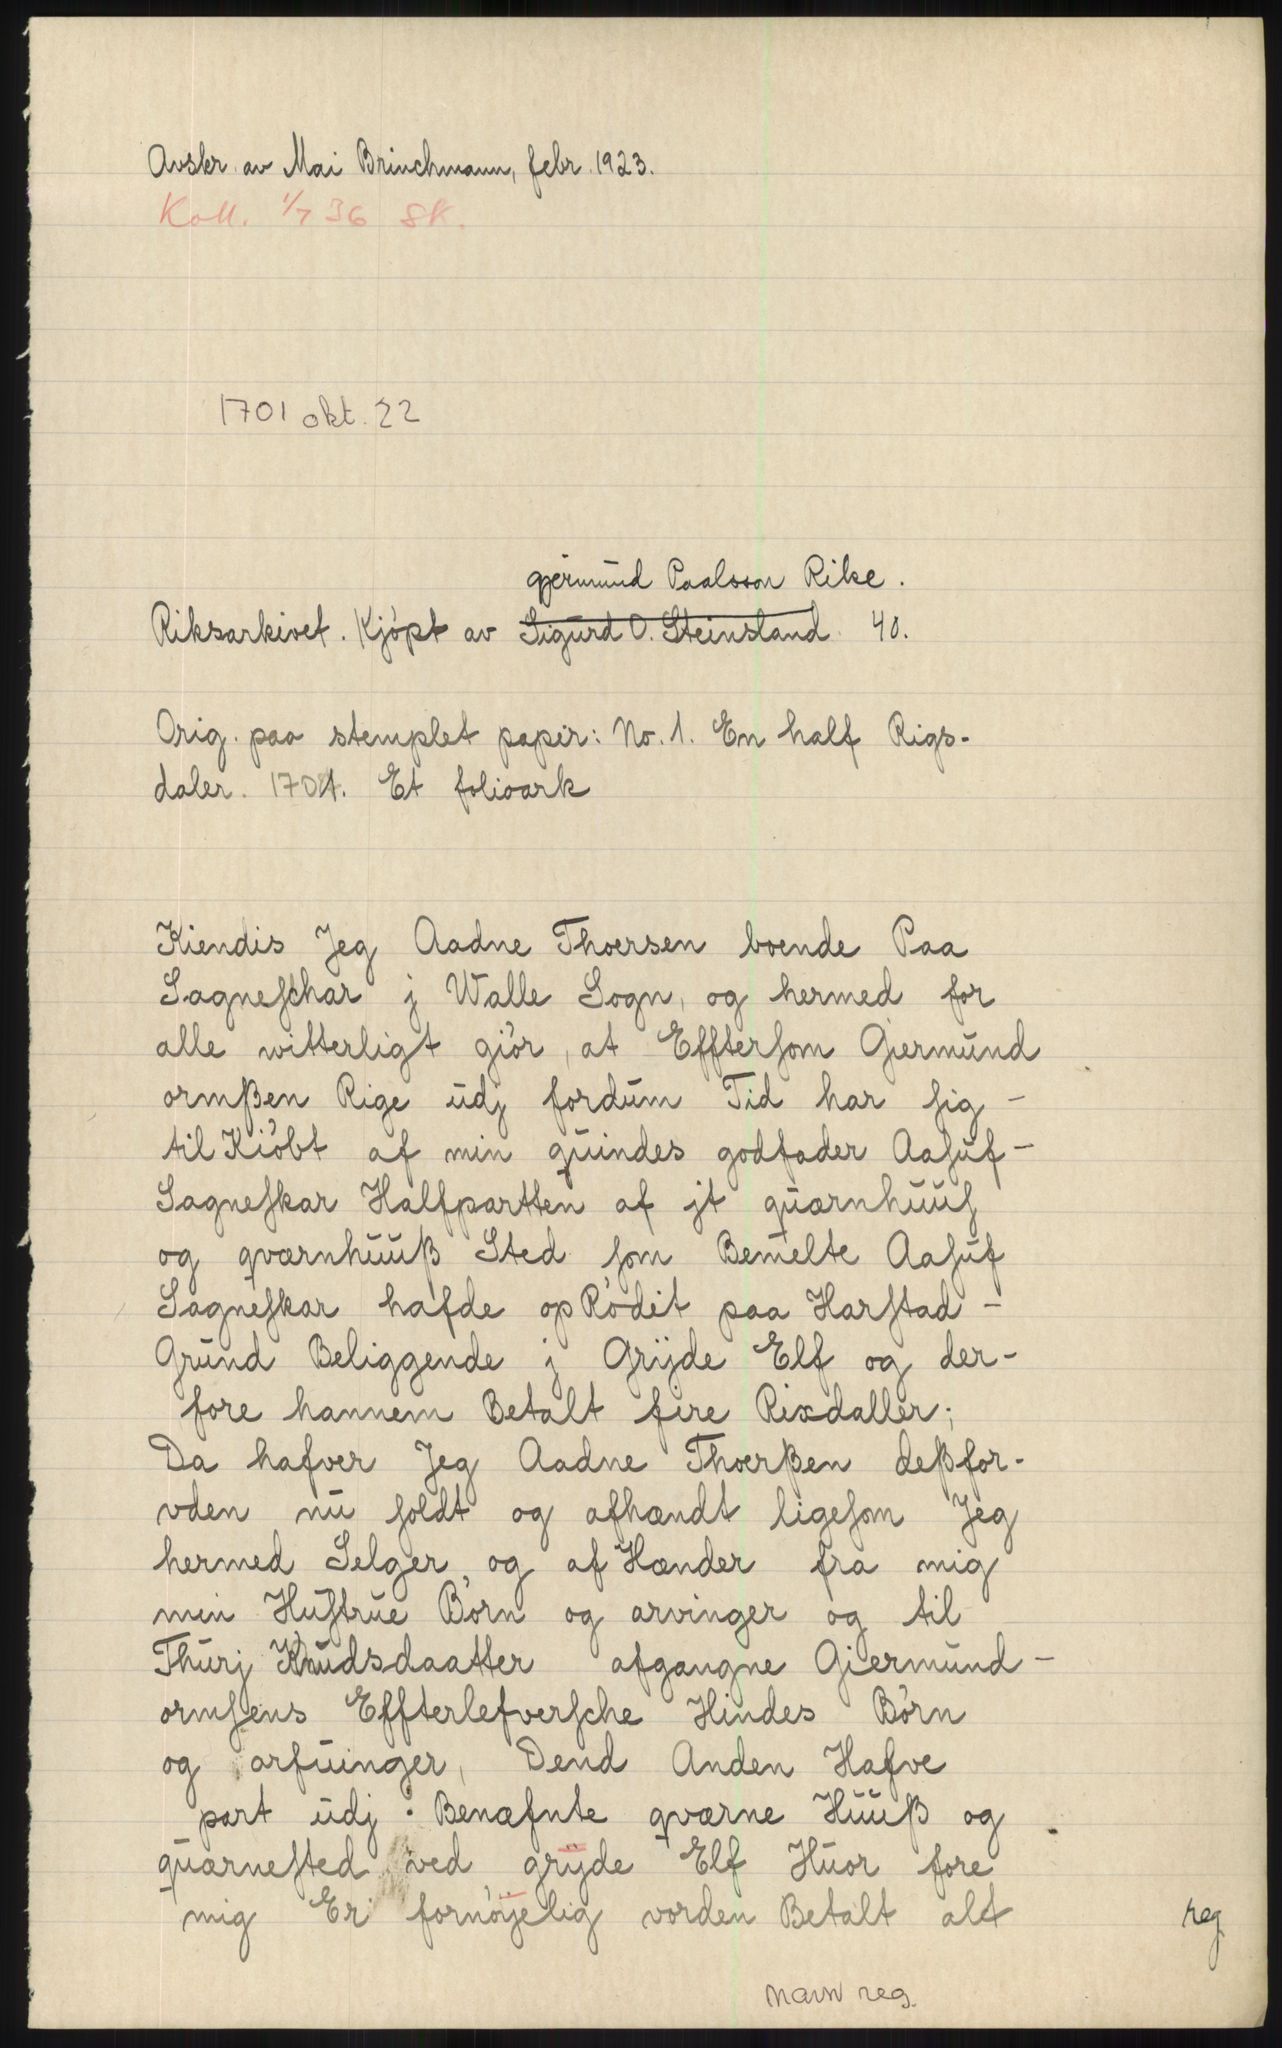 Avskr. av Mai Brinchmann, febr. 1923.
Koll. 1/7 36 SK.
1701 okt. 22
gjermund Paalsson Rike.
Riksarkivet. Kjøpt av Sigurd O. Steinsland. 40.
Orig. paa stemplet papir: No. 1. En half Rigs-
daler. 1701. Et folioark
Kiendis Jeg Aadne Thoersen boende Paa
Sagneschar j Walle Sogn, og hermed for
alle witterligt giör, at Efftersom Giermund
ormßen Rige udj fordum Tid har sig -
til Kiöbt af min quindes godfader Aasuf -
Sagneskar Halfpartten af jt quarnhuus
og qværnhuuß Sted som Bemelte Aasuf
Sagneskar hafde op Rödit paa Harstad -
Grund Beliggende j Grÿde Elf og der-
fore hannem Betalt fire Rixdaller;
Da hafver Jeg Aadne Thoerßen deßfor-
vden nu soldt og afhændt ligesom Jeg
hermed Selger og af Hænder fra mig
min Hustrue Börn og arvinger og til
Thurj Knudsdaatter afgangne Giermund -
ormsens Effterlefversche Hindes Börn
og arfuinger, Dend Anden Hafve
part udj Benæfnte qværne Huuß og
quarnested ved grÿde Elf Huor fore
mig Er fornöÿelig vorden Betalt alt
reg
navn reg.